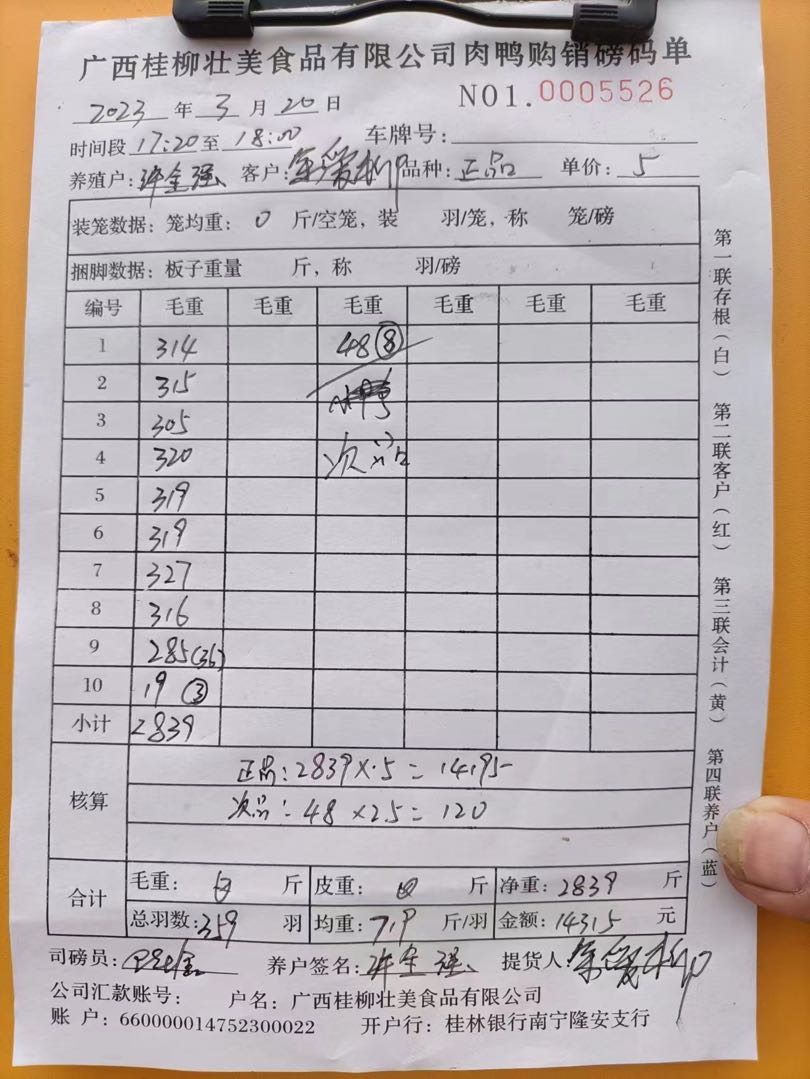 广西桂柳壮美食品有限公司肉鸭购销磅码单
2023 年 3 月 20 日 NO1.0005526
时间段 17:20 至 18:00 车牌号:
养殖户: 许金强 客户: 爱柳 品种: 正品 单价: 5
装笼数据: 笼均重: 0 斤/空笼, 装 羽/笼, 称 笼/磅
捆脚数据: 板子重量 斤, 称 羽/磅
编号 毛重 毛重 毛重 毛重 毛重 毛重
1 314 48⑧
2 315
3 305
4 320 次品
5 319
6 319
7 327
8 316
9 285(36)
10 19③
小计 2839
核算
正品:2839×5=14195
次品:48×2.5=120
合计
毛重: 斤 皮重: 斤 净重: 2839 斤
总羽数: 359 羽 均重: 7.9 斤/羽 金额: 14315 元
司磅员: 养户签名: 许金强 提货人: 爱柳
公司汇款账号: 户名: 广西桂柳壮美食品有限公司
账 户: 660000014752300022 开户行: 桂林银行南宁隆安支行
第一联存根(白) 第二联客户(红) 第三联会计(黄) 第四联养户(蓝)